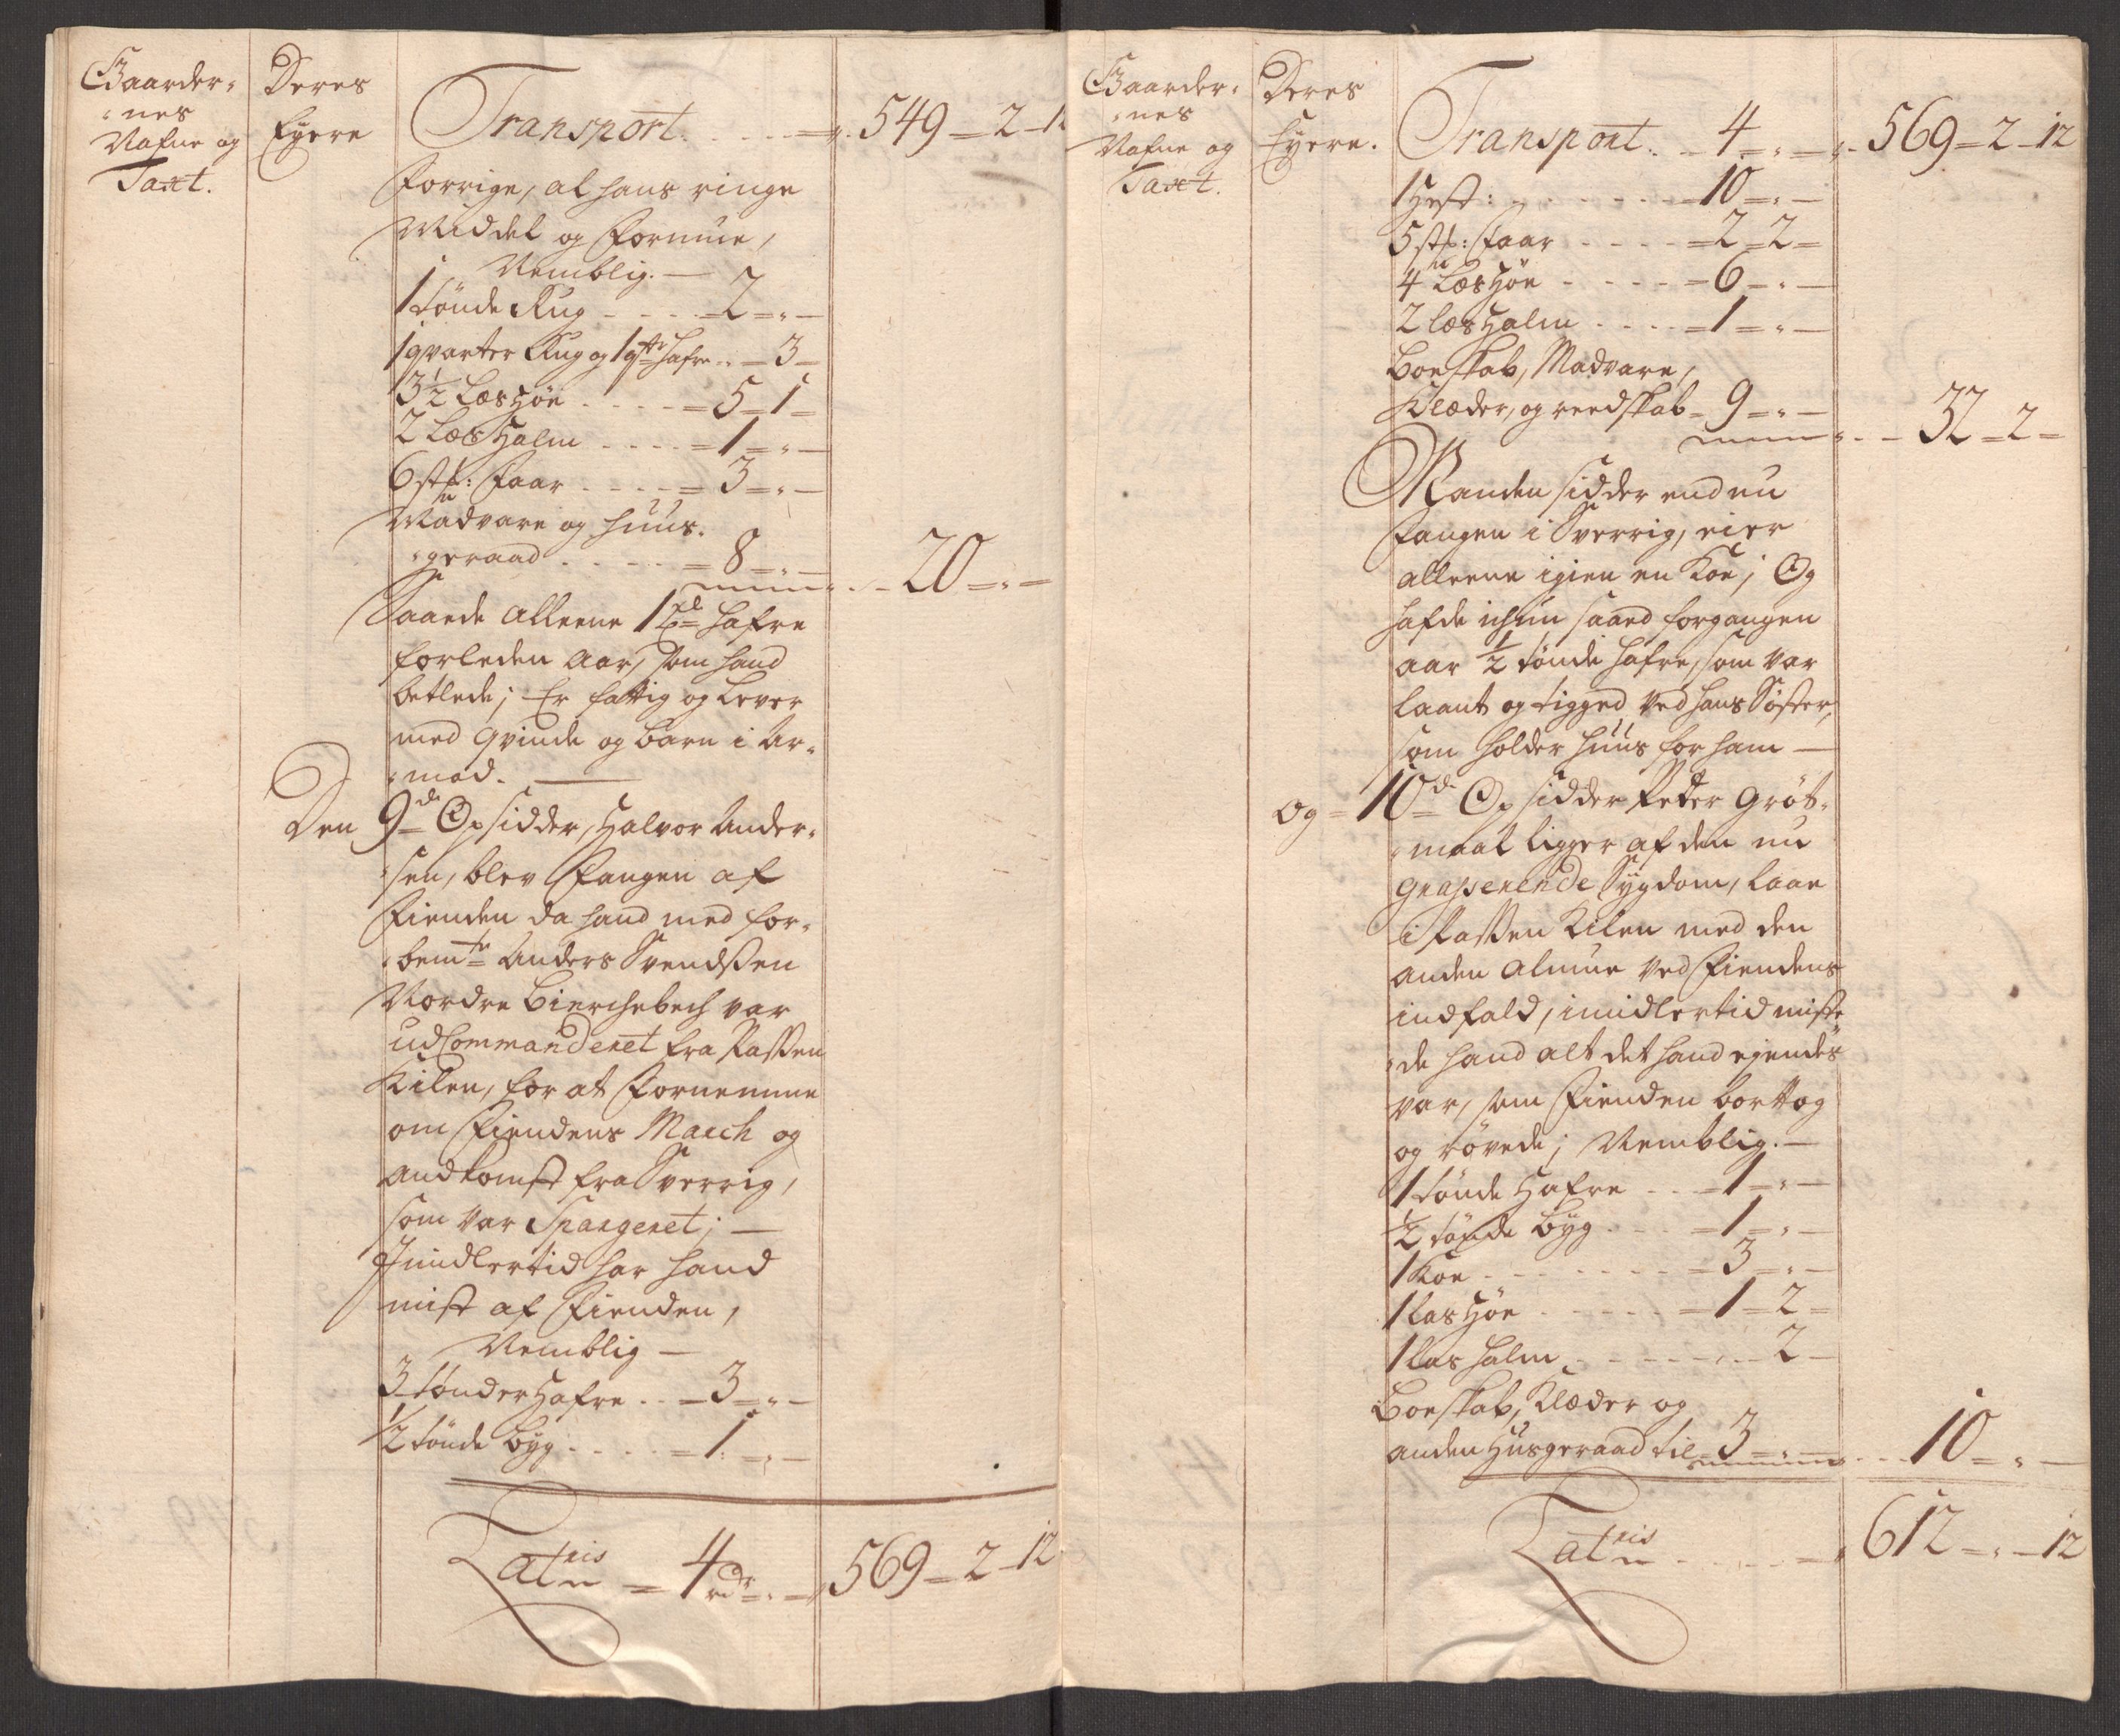 Gaarder-
-nes
Nafne og
Taxt.
Deres
Eyere
Transport. 549-2-12
Forrige, al hans ringe
Middel og Formue,
Nemblig.
1 tönde Rug 2
1 qvarter Rug og 1 qtr hafre 3
3½ Læs Höe 5-1
2 Læs Halm 1
6 stk: Faar 3
Madvare og huus-
-geraad 8 20
Saaede alleene 1 hafre
forleden Aar, som hand
betlede; Er fattig og Lever
med Qvinde og Barn i Ar-
-mod.
Den 9de Opsidder, Halvor Ander-
-sen, blev Fangen af
Fienden da hand med for-
-bemte Anders Svendsen
Nordre Bierchebech var
udCommanderet fra Passen
Kilen, for at Fornemme
om Fiendens March og
Andkomst fra Sverrig,
som var Spargeret;
Jmidlertid har hand
mist af Fienden,
Nemblig
3 tönder Hafre 3
½ tönde Byg 1
Latris 4 rdr 569-2-12
Gaarder-
-nes
Nafne og
Taxt.
Deres
Eyere.
Transport. 4 569-2-12
1 Hest: 10
5 stk: Faar 2-2
4 Læs Höe 6
2 læs Halm 1
Boeskab, Madvare,
Klæder, og reedskab 9 32-2
Manden sidder end nu
Fangen i Sverrig, eier
alleene igien en Koe; Og
hafde ichun saaed forgangen
aar ½ tönde Hafre, som var
laant og tigged ved hans Söster,
som holder huus for ham
og 10de Opsidder Peder Gröt-
-maal ligger af den nu
Grasserende Sygdom, laae
i Passen Kilen med den
anden Almue ved Fiendens
indfald, imidlertid miste
-de hand alt det hand ejendes
var, som Fienden borttog
og rövede; Nemblig.
1 tönde Hafre 1
½ tönde Byg 1
1 Koe 3
1 las Höe 1-2
1 las halm 2
Boeskab, Klæder og
anden Husgeraad til 3 10
Latris 612-"-12